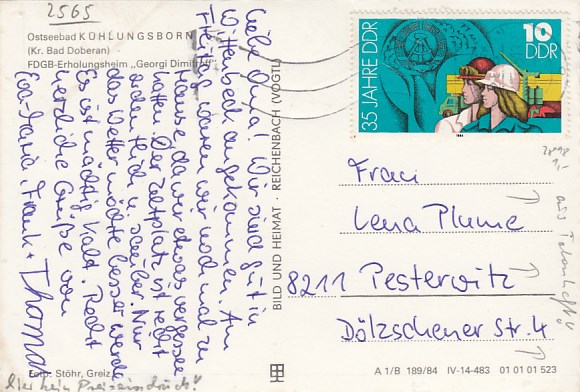 2565
Ostseebad KÜHLUNGSBORN
(Kr. Bad Doberan)
FDGB-Erholungsheim „Georgi Dimitroff"
Liebe Oma! Wir sind gut in
Wittenbeck angekommen. Am
Freitag waren wir noch mal zu
Hause, da wir etwas vergessen
hatten. Der Zeltplatz ist recht
ordentlich u. sauber. Nur
das Wetter möchte besser werden.
Es ist mächtig kalt. Recht
herzliche Grüße von
Eva-Maria, Frank +
Thomas
Foto: Stöhr, Greiz
hier kein Preiseindruck!!
BILD UND HEIMAT · REICHENBACH (VOGTL)
35 JAHRE DDR
10
DDR
1984
1,-
aus Markenheft!!
Frau
Lena Plume
8211 Pesterwitz
Dölzschener Str. 4
A 1/B 189/84 IV-14-483 01 01 01 523